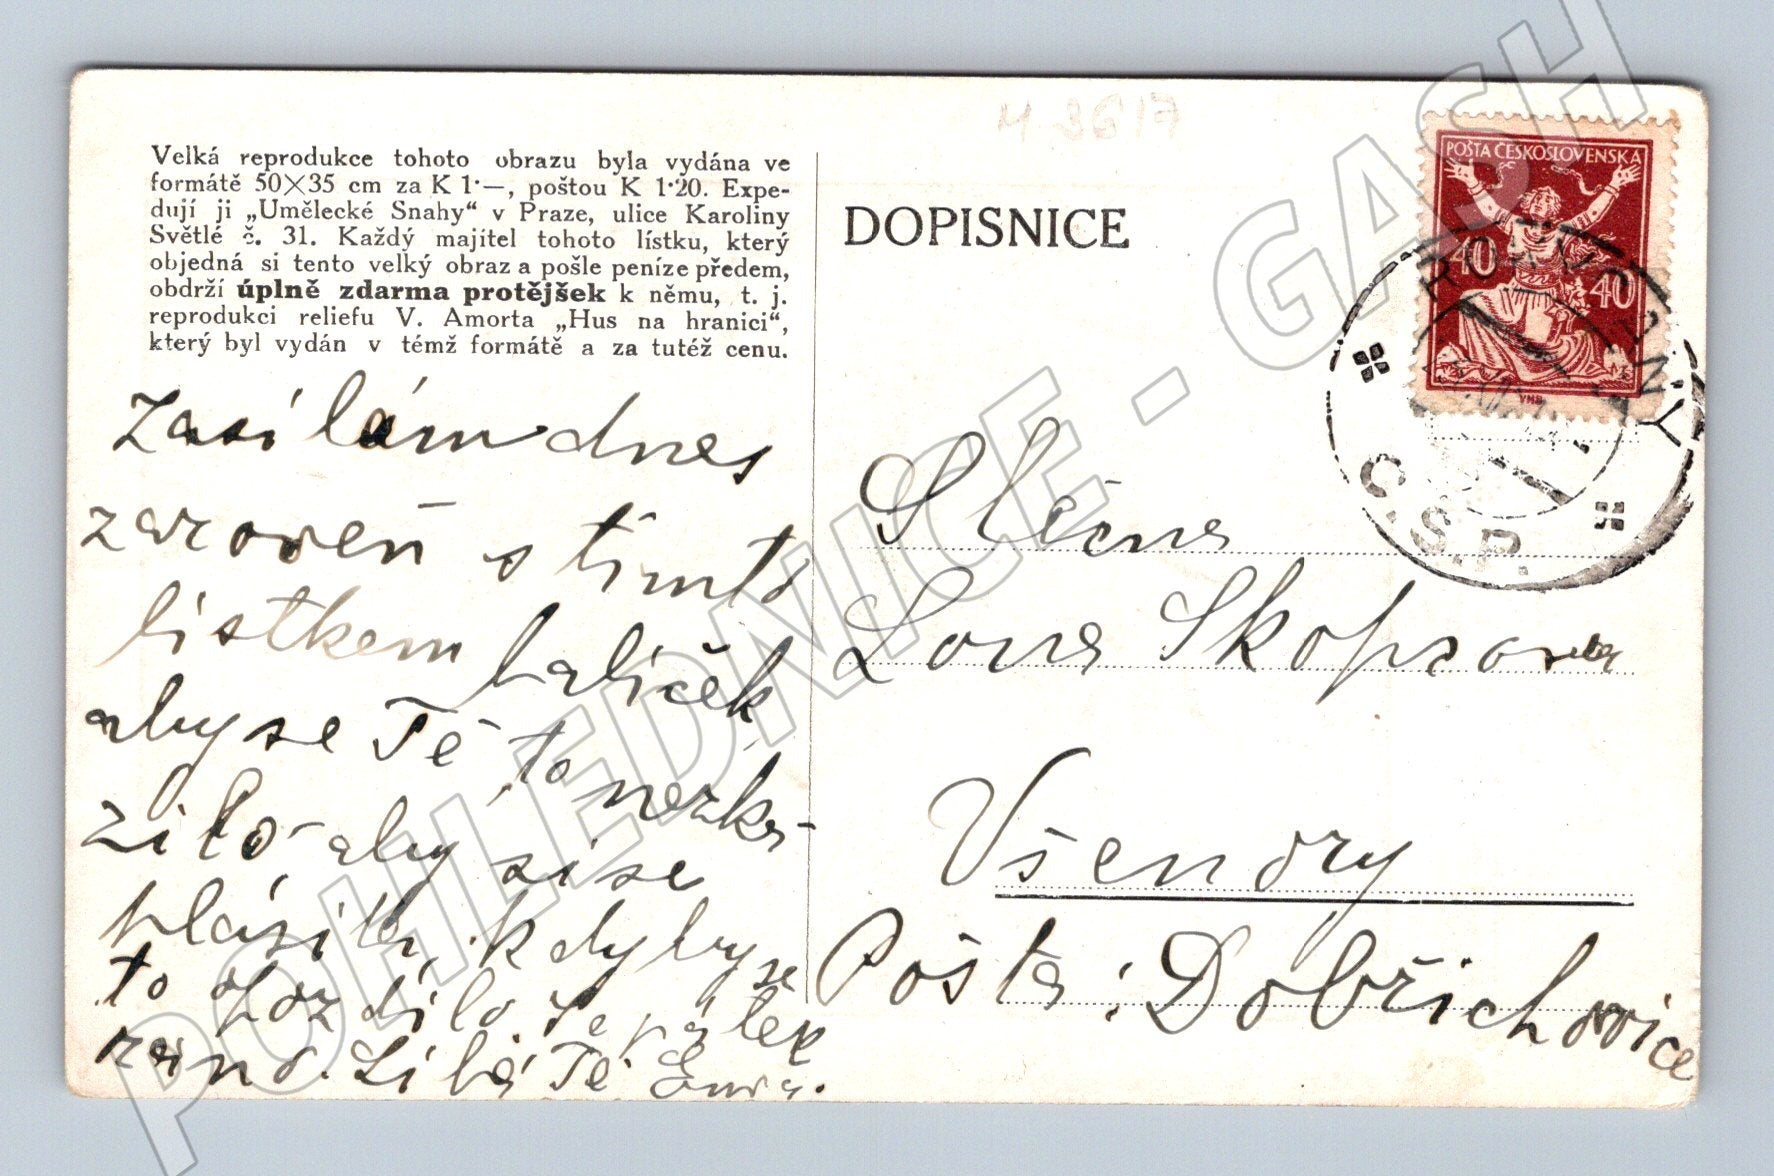 M 3617
Velká reprodukce tohoto obrazu byla vydána ve
formátě 50×35 cm za K 1·—, poštou K 1·20. Expe-
dují ji „Umělecké Snahy“ v Praze, ulice Karoliny
Světlé č. 31. Každý majitel tohoto lístku, který
objedná si tento velký obraz a pošle peníze předem,
obdrží úplně zdarma protějšek k němu, t. j.
reprodukci reliefu V. Amorta „Hus na hranici“,
který byl vydán v témž formátě a za tutéž cenu.
Zasílám dnes
zároveň s tímto
lístkem balíček
aby se Tě to nezká-
zilo aby si se
hlásila kdyby se
to opozdilo. Je pátek
ráno. Líbá Tě Ema.
DOPISNICE
POŠTA ČESKOSLOVENSKÁ
40
40
Č.S.P.
Slečna
Lona Skoprova
Všenory
Pošta: Dobřichovice
POHLEDNICE - GASH